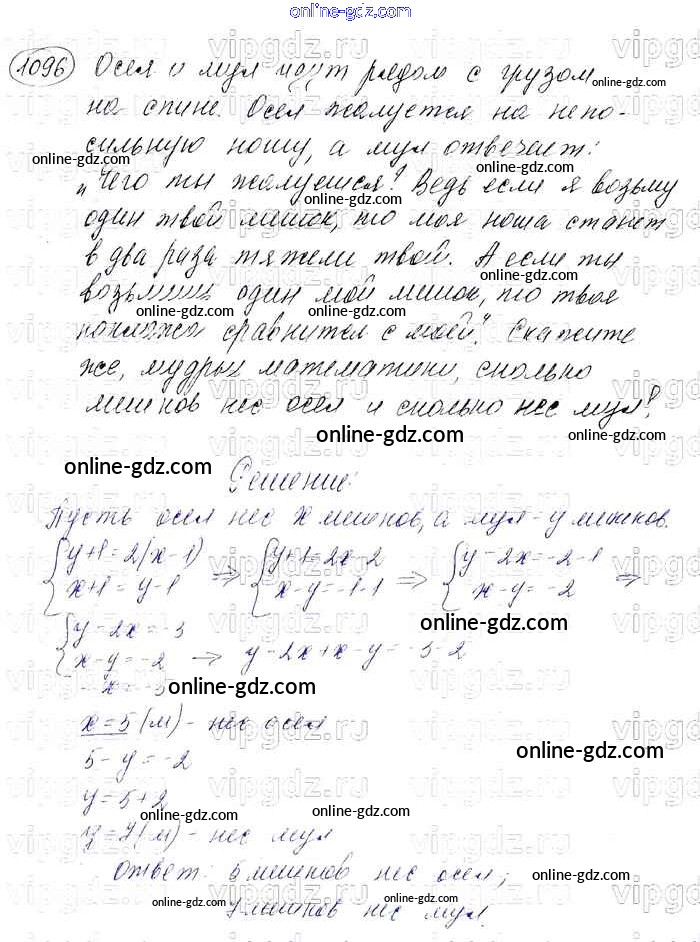 online-gdz.com
1096 Осел и мул идут рядом с грузом
online-gdz.com
на спине. Осел жалуется на непо-
сильную ношу, а мул отвечает:
online-gdz.com online-gdz.com
„Чего ты жалуешься? Ведь если я возьму
online-gdz.com
один твой мешок, то моя ноша станет
в два раза тяжели твой. А если ты
online-gdz.com
возьмешь один мой мешок, то твоя
online-gdz.com
поклажа сравнится с моей". Скажите
же, мудрые математики, сколько
мешков нес осел и сколько нес мул?
online-gdz.com online-gdz.com
online-gdz.com
Решение:
Пусть осел нес x мешков, а мул - y мешков.
{y+1=2(x-1) => {y+1=2x-2 => {y-2x=-2-1 =>
x+1=y-1 x-y=-1-1 x-y=-2
online-gdz.com
{y-2x=-3
x-y=-2 -> y-2x+x-y=-3-2
-x=-5
online-gdz.com
x=5(м) - нес осел
5-y=-2
online-gdz.com
y=5+2
online-gdz.com
y=7(м) - нес мул
Ответ: 5 мешков нес осел;
online-gdz.com
online-gdz.com
7 мешков нес мул.
online-gdz.com